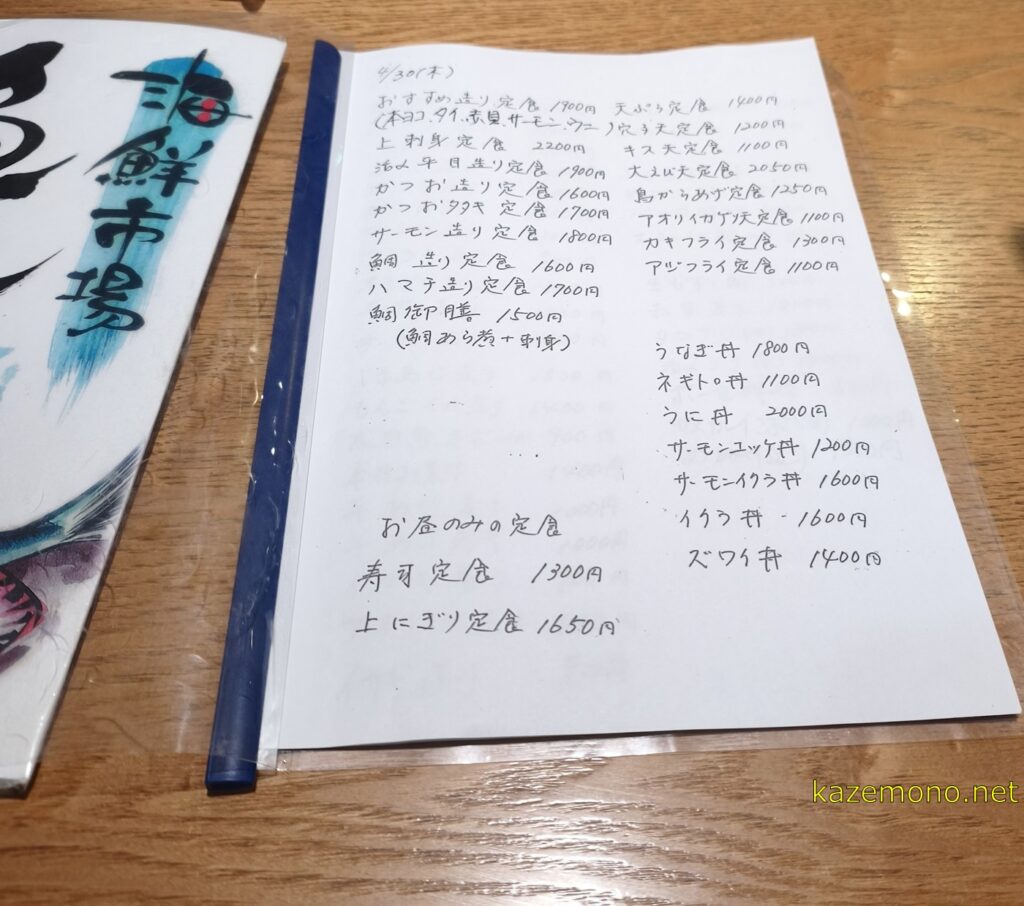 海鮮市場
4/30(木)
おすすめ造り定食 1900円
(本ヨコ、タイ、赤貝、サーモン、ウニ)
上刺身定食 2200円
活〆平目造り定食 1900円
かつお造り定食 1600円
かつおタタキ定食 1700円
サーモン造り定食 1800円
鯛造り定食 1600円
ハマチ造り定食 1700円
鯛御膳 1500円
(鯛あら煮+刺身)
お昼のみの定食
寿司定食 1300円
上にぎり定食 1650円
天ぷら定食 1400円
穴子天定食 1200円
キス天定食 1100円
大えび天定食 2050円
鳥からあげ定食 1250円
アオリイカゲソ天定食 1100円
カキフライ定食 1300円
アジフライ定食 1100円
うなぎ丼 1800円
ネギトロ丼 1100円
うに丼 2000円
サーモンユッケ丼 1200円
サーモンイクラ丼 1600円
イクラ丼 1600円
ズワイ丼 1400円
kazemono.net